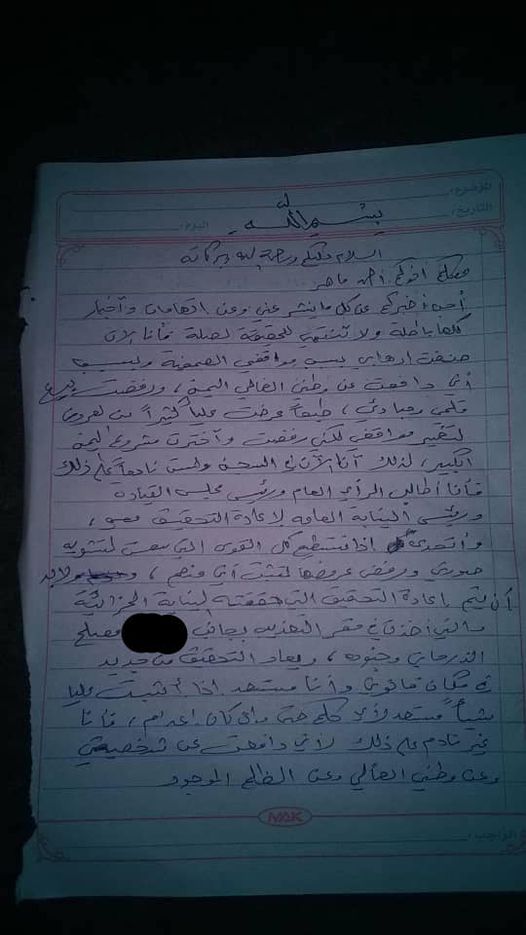 الموضوع:
التاريخ:
اليوم:
بسم الله
السلام عليكم ورحمة الله وبركاته
معكم أخوكم احمد ماهر
أحب أخبركم عن كل ما نشر عني وعن اتهامات وأخبار
كلها باطلة ولا تنتمي للحقيقة بصلة فأنا الآن
صنفت إرهابي بسبب مواقفي الصحفية وبسبب
أني دافعت عن وطني الغالي اليمن، ورفضت بيع
قلمي ومبادئي، طبعاً عرضت عليا كثيراً من العروض
لتغيير مواقفي لكني رفضت وأخترت مشروع اليمن
الكبير، لذلك أنا الآن في السجن ولست نادماً على ذلك
فأنا أطالب الرأي العام ورئيس مجلس القيادة
ورئيس النيابة العامة لإعادة التحقيق معي،
وأتحدى اذا تستطيع كل القوى التي سعت لتشويه
صورتي ورفض عروضها تثبت أي منهم، ولابد
أن يتم إعادة التحقيق التي حققته النيابة الجزائية
والتي أخذ في مقر التعذيب بجانب مصلح
الذرحاني وجنوده، ويعاد التحقيق من جديد
في مكان قانوني وأنا مستعد اذا أثبت عليا
شيئاً مستعد لأي حكم حتى وان كان إعدام، فأنا
غير نادم على ذلك لأني دافعت عن شخصيتي
وعن وطني الغالي وعن الظلم الموجود
NAK
الواجب: